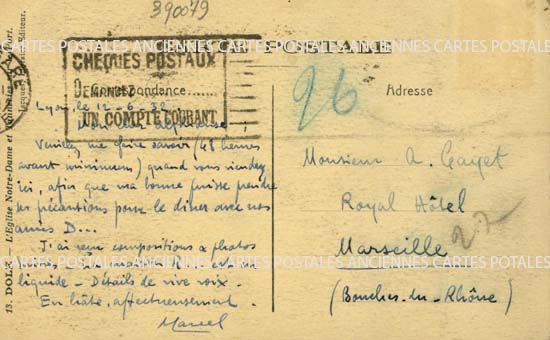 390079
CHEQUES POSTAUX
DEMANDEZ
UN COMPTE COURANT
Correspondance
Lyon, le 12-6-32
Mon cher
Veuillez me faire savoir (48 heures
avant minimum) quand vous viendrez
ici, afin que ma bonne puisse prendre
ses précautions pour le dîner avec nos
amis D...
J'ai reçu compositions & photos
liquide - Détails de vive voix.
En hâte, affectueusement.
Marcel
26
Adresse
Monsieur A. Gayet
Royal Hôtel
Marseille
27
(Bouches-du-Rhône)
13. DOLE - L'Eglise Notre-Dame et
Editeur.
CARTES POSTALES ANCIENNES CARTES POSTALES ANCIENNES